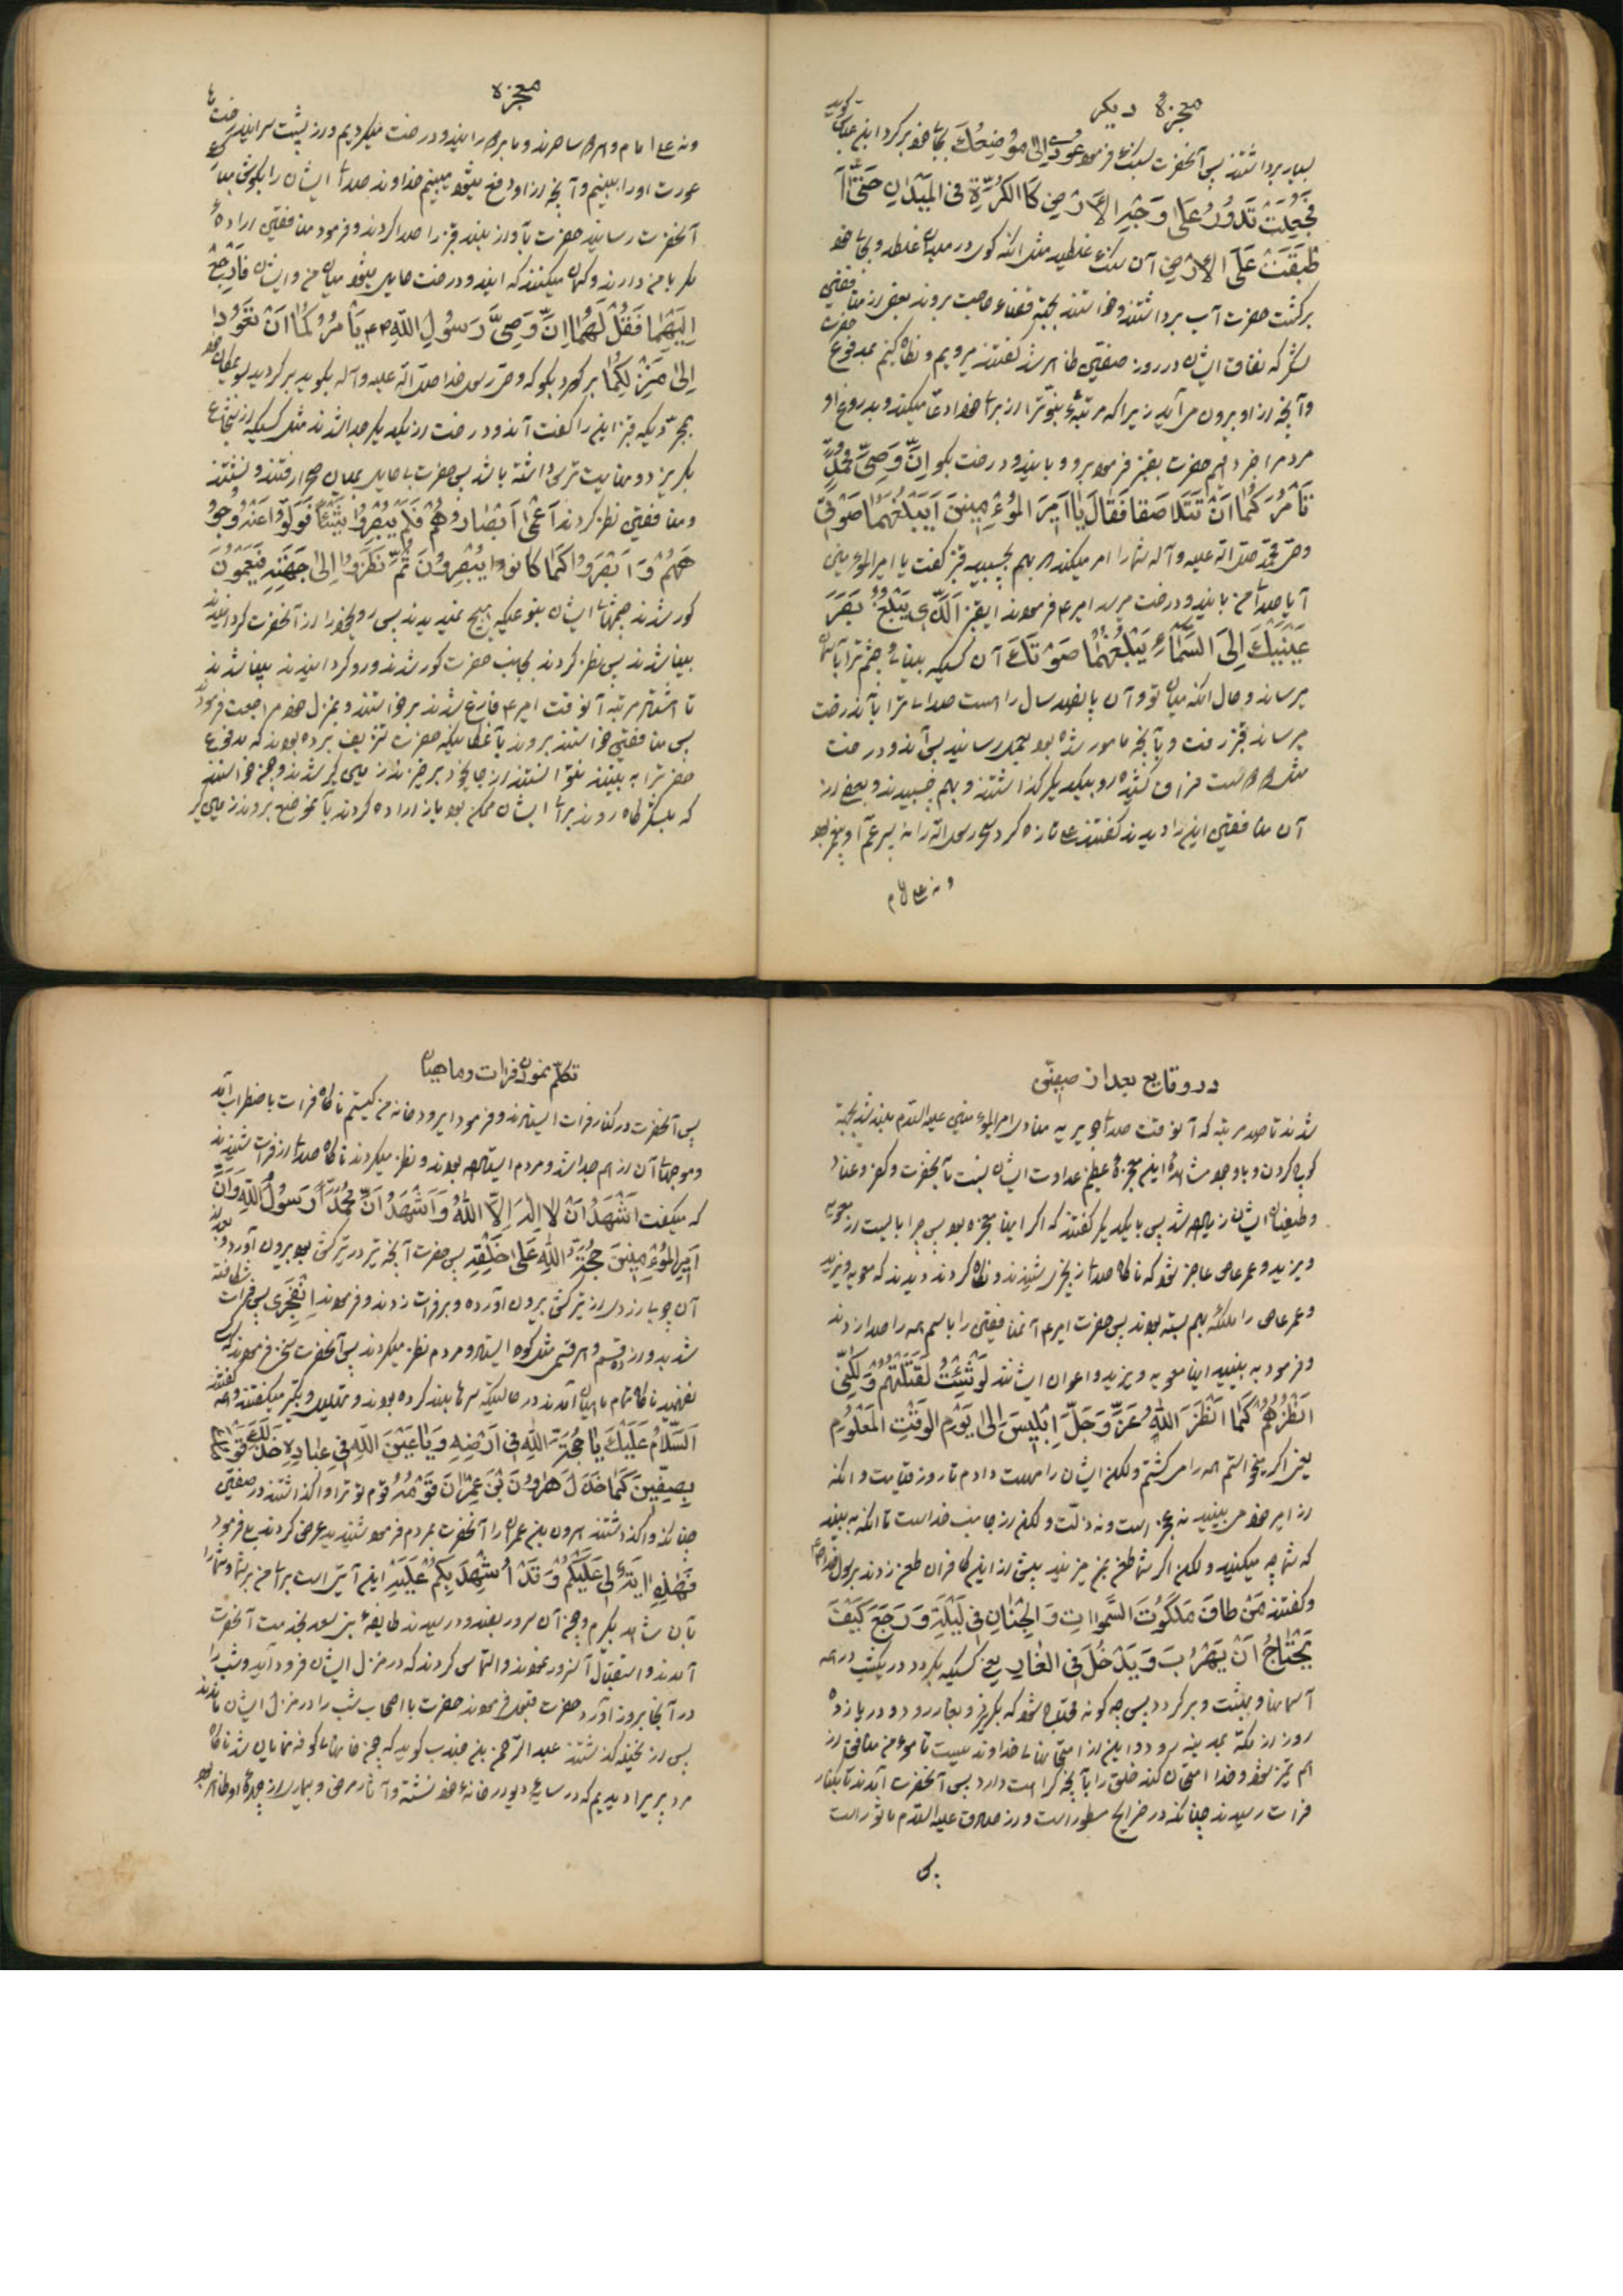 معجزهٔ دیگر
بسیار برداشتند پس آنحضرت بسنگ فرمود عُودِی اِلیٰ مَوْضِعِكَ بجای خود برگرد ابن عباس گوید
فَجَعَلَتْ تَدُورُ عَلیٰ وَجْهِ الْاَرْضِ كَالْكُرَةِ فِی الْمَیْدَانِ حَتّیٰ
طَبَقَتْ عَلَی الْاَرْضِ آن سنگ غلطید مثل آنکه کوی در میدان غلطد و بجای خود
برگشت حضرت آب برداشتند و خواستند بجهة قضاء حاجت بروند بعضی از منافقین
لشگر که نفاق ایشان در روز صفین ظاهر شد گفتند میرویم و نگاه کنیم بمدفوع حضرت
و آنچه از او بیرون می‌آید زیرا که مرتبهٔ نبوت را از برای خود ادعا میکند و بدروغ او
مردم را خبر دهیم حضرت بقنبر فرمود برو و باین دو درخت بگو اِنَّ وَصِیَّ مُحَمَّدٍ
تَأمُرُكُمَا اَنْ تَتَلَاصَقَا فَقَالَ یَا اَمِیرَ الْمُؤمِنِینَ اَیَبْلُغُهُمَا صَوْتِی
وصی محمد صلی الله علیه وآله شما را امر میکند که بهم بچسبید قنبر گفت یا امیرالمؤمنین
آیا صدای من باین دو درخت میرسد امیر ع فرمودند ای قنبر اَلَّذِی یَبْلُغُ بَصَرَ
عَیْنَیْكَ اِلَی السَّمَاءِ یَبْلُغُهُمَا صَوْتَكَ آن کسیکه بینائی چشم ترا بآسمان
میرساند و حال آنکه میان تو و آن پانصد سال راه است صدای ترا بآن درخت
میرساند قنبر رفت و بآنچه مامور شده بود بعمل رسانید پس آن دو درخت
آن منافقین این را دیدند گفتند علی تازه کرد سحر رسول الله را نه پسر عمّ او پیغمبر بود
ونه علی امام
معجزه
ونه علی امام و هر دو ساحرند و ما برگرد این دو درخت میگردیم و از پشت سر این درخت ها
عورت او را ببینیم و آنچه از او دفع میشود ببینیم خداوند صدای ایشان را بگوش مبارک
آنحضرت رسانید حضرت بآواز بلند قنبر را صدا کردند و فرمود منافقین اراده
مکر با من دارند و گمان میکنند که این دو درخت حایل میشود میان من و ایشان فَارْجِعْ
اِلَیْهِمَا فَقُلْ لَهُمَا اِنَّ وَصِیَّ رَسُولِ اللّٰهِ ص یَامُرُكُمَا اَنْ تَعُودَا
اِلیٰ مَنْزِلِكُمَا برگرد و بگو که وصی رسول خدا صلی الله علیه وآله بگوید برگردید بمکان خود
بمجرّدیکه قنبر این را گفت آن دو درخت از یکدیگر جدا شدند مثل کسیکه از شجاعی
بگریزد و نهایت ترس داشته باشد پس حضرت بی حایل بمیان صحرا رفتند و نشستند
و منافقین نظر کردند اَعْمیٰ اَبْصَارُهُمْ فَلَمْ یُبْصِرُوا شَیْئاً فَوَلَّوْا عَنْهُ وُجُوهَهُمْ
وَ اَبْصَرُوا كَمَا كَانُوا یُبْصِرُونَ ثُمَّ نَظَرُوا اِلیٰ جِهَتِهِ فَیَعْمَوْنَ
کور شدند چشمهای ایشان بنوعیکه هیچ نمیدیدند پس روی خود را از آنحضرت گردانیدند
بینا شدند پس نظر کردند بجانب حضرت کور شدند و رو گردانیدند بینا شدند
تا هشتاد مرتبه آنوقت امیر ع فارغ شدند برخواستند و بمنزل خود مراجعت فرمود
پس منافقین خواستند بروند بآنمکانیکه حضرت تشریف برده بودند که مدفوع
حضرت را به بینند نتوانستند از جای خود برخیزند زمین گیر شدند و چون خواستند
که بلشگرگاه روند برای ایشان ممکن بود باز اراده کردند بآنموضع بروند زمین گیر
در وقایع بعد از صفین
شدند تا صد مرتبه که آنوقت صدای جویریه منادی امیرالمؤمنین علیه السلام بلند شد بجهة
کوچ کردن و با وجود مشاهدهٔ این معجزهٔ عظیم عداوت ایشان نسبت بآنحضرت و کفر و عناد
و طغیان ایشان زیاد شد پس با یکدیگر گفتند که اگر اینها معجزه بود پس چرا بایست از معویه
و یزید و عمرعاص عاجز شود که ناگاه صدا از بحر شنیدند و نگاه کردند دیدند که معویه و یزید
و عمر عاص را ملائکه بهم بسته بودند پس حضرت امیر ع آنمنافقین را باسم همه را صدا زدند
و فرمود به بینید اینها معویه و یزید و اعوان ایشانند لَوْشِئْتُ لَقَتَلْتُهُمْ وَلٰكِنِّی
اَنْظُرُهُمْ كَمَا اَنْظَرَ اللّٰهُ عَزَّوَجَلَّ اِبْلِیسَ اِلیٰ یَوْمِ الْوَقْتِ الْمَعْلُومِ
یعنی اگر میخواستم همه را میکشتم ولکن ایشان را مهلت دادم تا روز قیامت و آنکه
از امیر خود می بینید نه عجز است و نه ذلّت ولکن از جانب خداست تا آنکه به بیند
که شما چه میکنید ولکن اگر شما طعن بمن میزنید پیش از این کافران طعن زدند برسول خدا ص
و گفتند مَنْ طَافَ مَلَكُوتَ السَّمٰوَاتِ وَالْجِنَانِ فِی لَیْلَةٍ وَرَجَعَ كَیْفَ
یَحْتَاجُ اَنْ یَهْرُبَ وَیَدْخُلَ فِی الْغَارِ یعنی کسیکه بگردد در یکشب در همه
آسمانها و بهشت و برگردد پس چه گونه محتاج شود که بگریزد و بغار رود و در یازده
روز از مکه بمدینه رود و این از امتحانهای خداوند نیست تا مؤمن از منافق از
هم تمیز شود و خدا امتحان کند خلق را بآنچه کراهت دارد پس آنحضرت آمدند تا بکنار
فرات رسیدند چنانکه در خرایج مسطور است و از صادق علیه السلام ماثور است
پس
تکلّم نمودن فرات و ماهیان
پس آنحضرت در کنار فرات ایستادند و فرمود ای رودخانه من کیستم ناگاه فرات باضطراب آمد
و موجهای آن از هم جدا شد و مردم ایستاده بودند و نظر میکردند ناگاه صدا از فرات شنیدند
که میگفت اَشْهَدُ اَنْ لَا اِلٰهَ اِلَّا اللّٰهُ وَاَشْهَدُ اَنَّ مُحَمَّداً رَسُولُ اللّٰهِ وَاَنَّ
اَمِیرَ الْمُؤْمِنِینَ حُجَّةُ اللّٰهِ عَلیٰ خَلْقِهِ پس حضرت آنچه تیر در ترکش بود بیرون آورد و
آن چوب را از ترکش بیرون آورده و بر فرات زدند و فرمودند اِنْفَجِرِی پس فرات شکافته
نفهمید ناگاه تمام ماهیان آمدند در حالتیکه سرها بلند کرده بودند و تهلیل و تکبیر میگفتند و همه گفتند
اَلسَّلَامُ عَلَیْكَ یَا حُجَّةَ اللّٰهِ فِی اَرْضِهِ وَیَا عَیْنَ اللّٰهِ فِی عِبَادِهِ خَذَلَكَ قَوْمُكَ
بِصِفِّینَ كَمَا خَذَلَ هَارُونَ بْنَ عِمْرَانَ قَوْمُهُ قوم تو ترا واگذاشتند در صفین
چنانکه واگذاشتند هرون بن عمران را آنحضرت بمردم فرمود شنیدید عرض کردند بلی فرمود
فَهٰذِهِ اٰیَةٌ لِی عَلَیْكُمْ وَقَدْ اُشْهِدْتُكُمْ عَلَیْهِ این آیتی است برای من بر شما و شما را
بآن شاهد بگیرم و چون آن سرور بغنودند رسیدند طایفهٔ بنی سعد بخدمت آنحضرت
آمدند و استقبال آنسرور نمودند و التماس کردند که در منزل ایشان فرود آید و شب را
در آنجا بروز آورد حضرت قبول فرمودند حضرت با اصحاب شب را در منزل ایشان ماندند
پس از نخیله گذشتند عبدالرّحمن بن جندب گوید که چون خانهای کوفه نمایان شد ناگاه
مرد پیریرا دیدیم که در سایهٔ دیوار خانهٔ خود نشسته و آثار مرض و بیماری از چهرهٔ او ظاهر بود